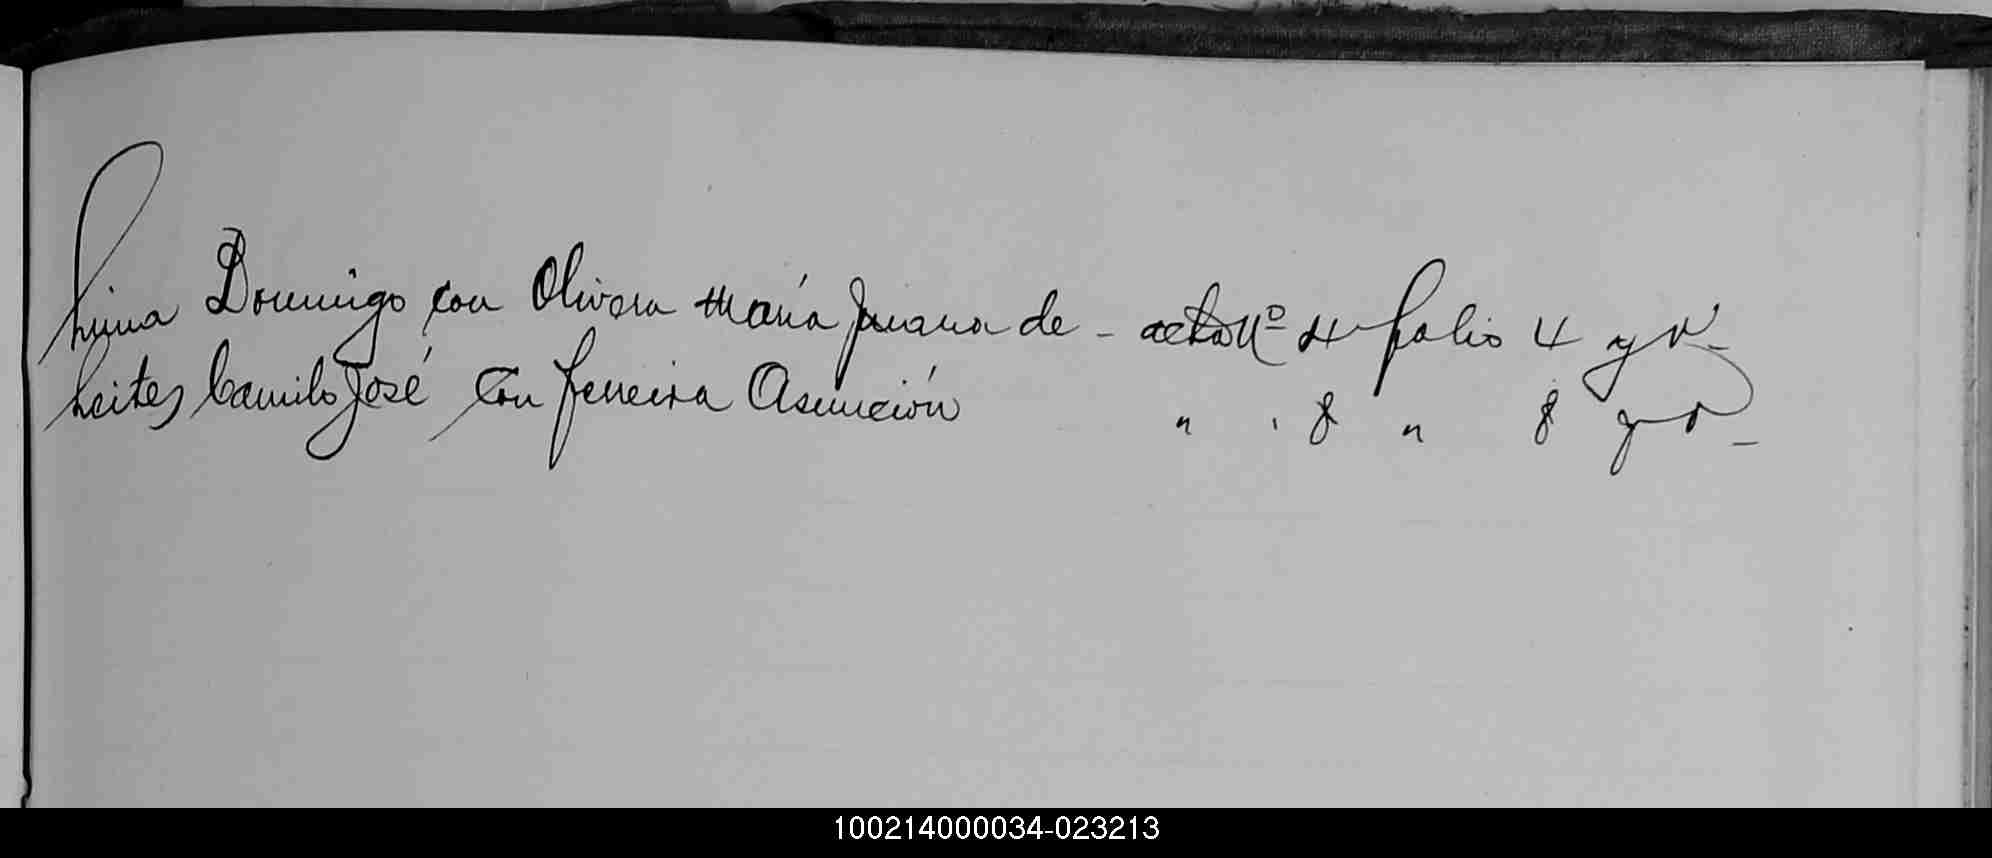 Lima Domingo con Olivera María Juana de - acta Nº 4 folio 4 y v.
Leites Camilo José con Ferreira Asunción " " 8 " 8 y v.
100214000034-023213